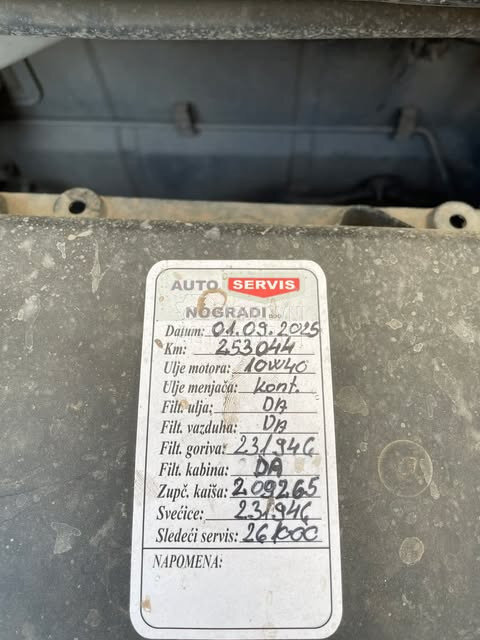 AUTO SERVIS
NOGRADI DOO
Datum: 01.09.2025
Km: 253044
Ulje motora: 10W40
Ulje menjača: kont.
Filt. ulja: DA
Filt. vazduha: DA
Filt. goriva: 231946
Filt. kabina: DA
Zupč. kaiša: 209265
Svećice: 231946
Sledeći servis: 261000
NAPOMENA: